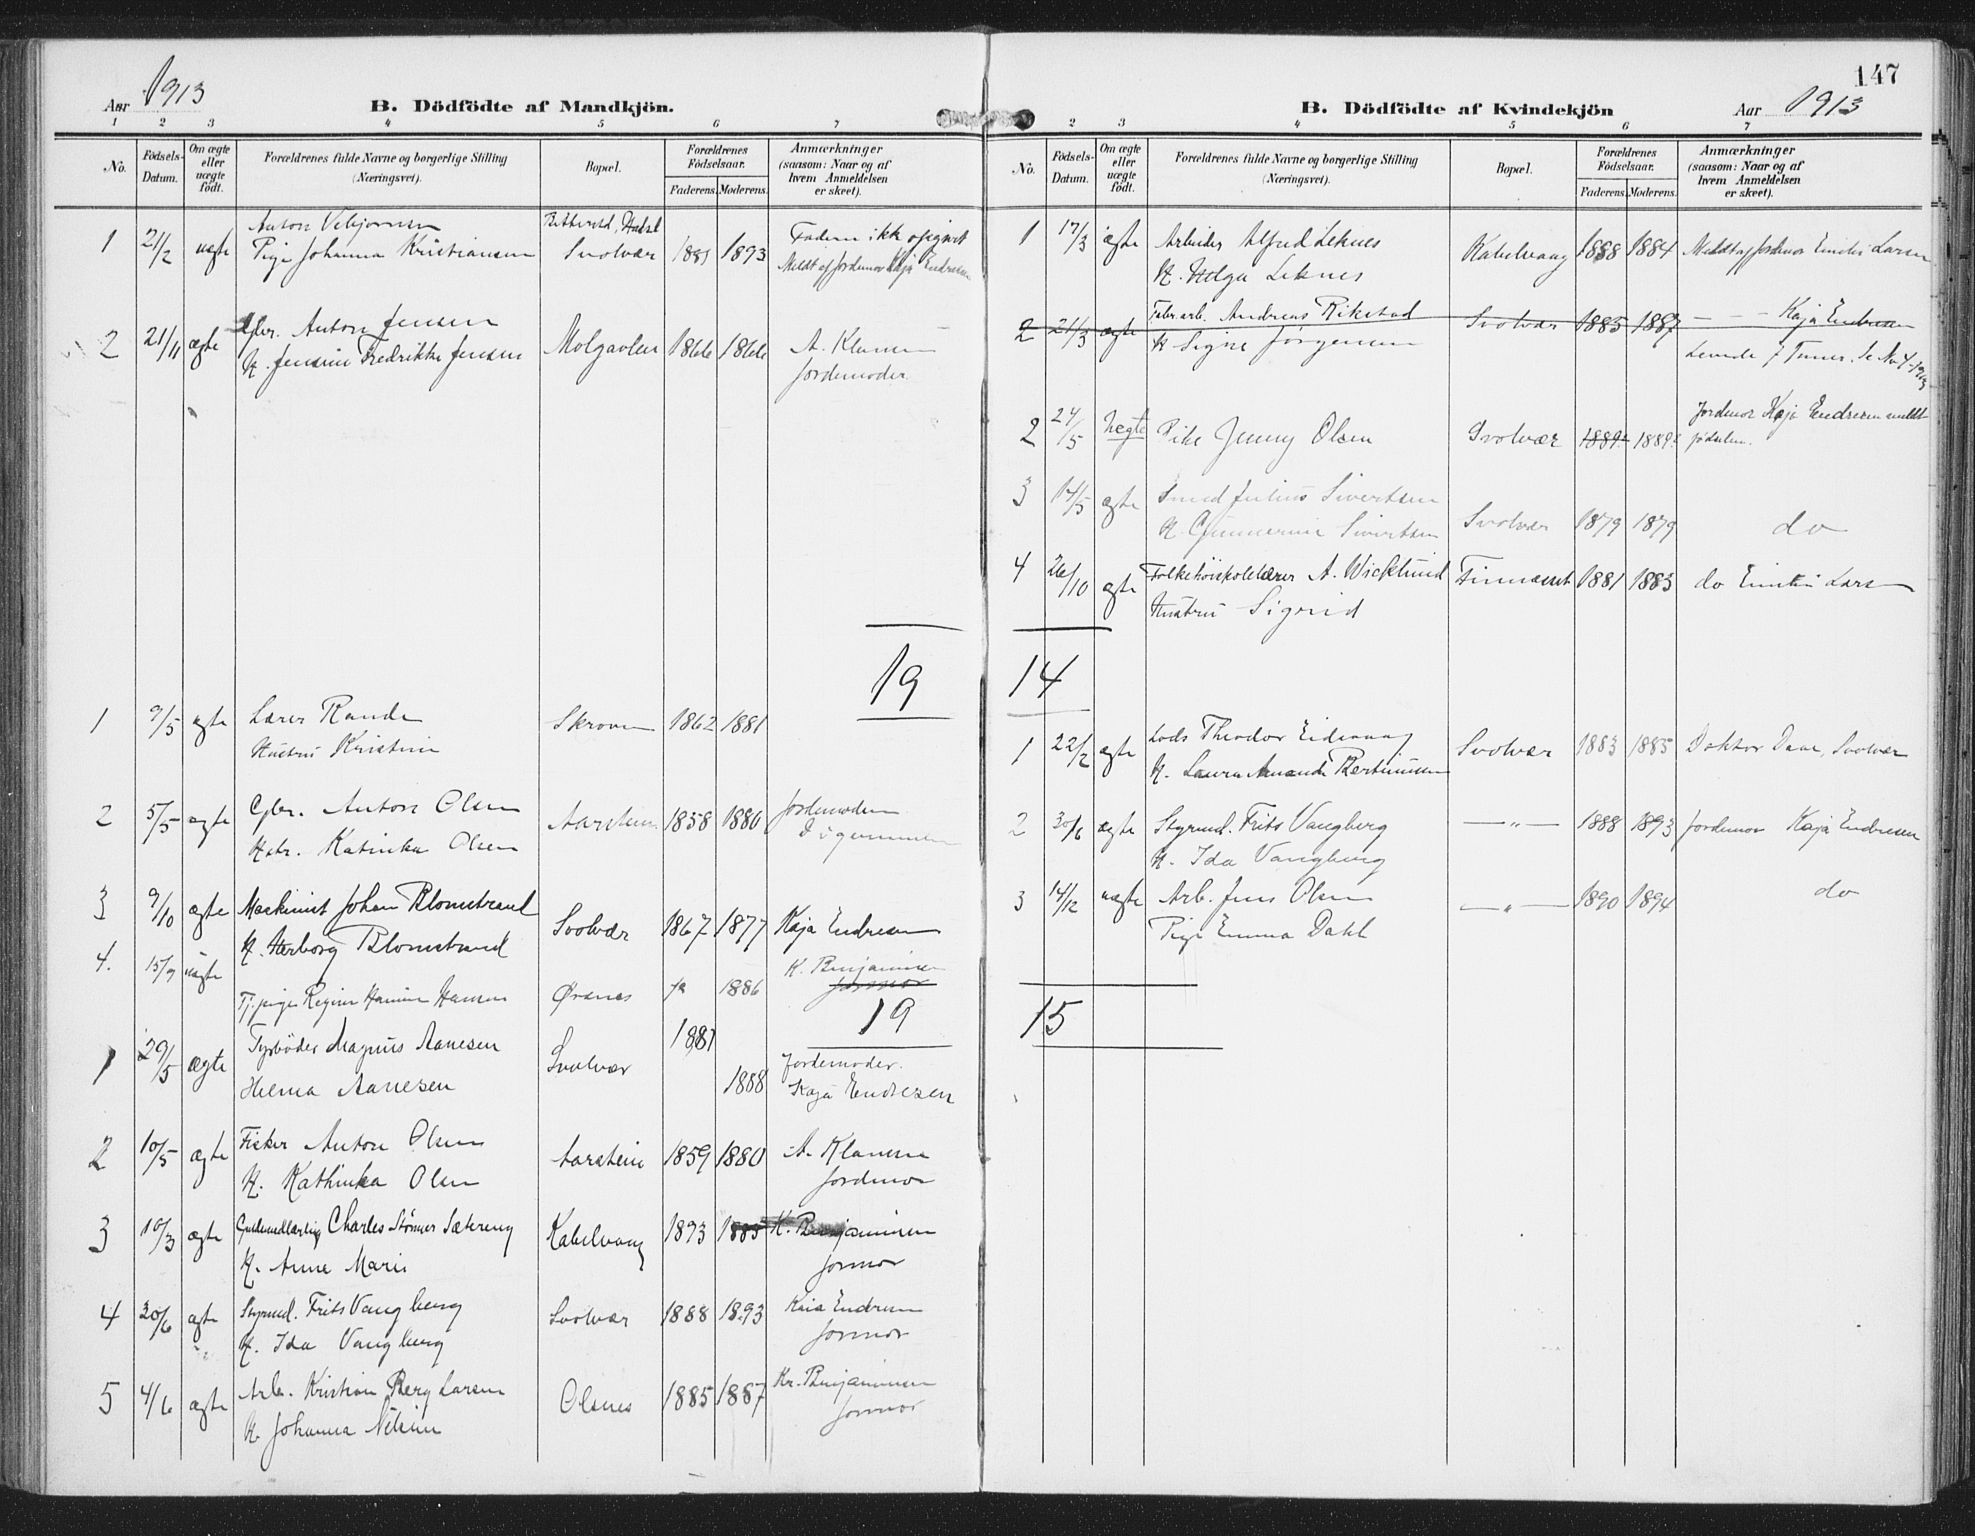 Aar 1913
B. Dödfödte af Mandkjön.
1 2 3 4 5 6 7
No.
Födsels-Datum.
Om ægte eller uægte födt.
Forældrenes fulde Navne og borgerlige Stilling (Næringsvei).
Bopæl.
Forældrenes Födselsaar.
Faderens. Moderens.
Anmærkninger (saasom: Naar og af hvem Anmeldelsen er skeet).
Anton
1 21/2 uægte Pige Johanna Kristiansen Svolvær 1893 Faderen ikke opgivet
Meldt af Jordemor Kaja Endresen
2 21/11 ægte Gbr. Anton Jensen Molgavlen 1866 1866 A. Klausen
H. Jensine Fredrikke Jensen Jordemoder
19
1 9/5 ægte Lærer Rande Skroven 1862 1881
Hustru Kristine
2 5/5 ægte Gbr. Anton Olsen Aarstein 1858 1880 Jordemoderen
Hstr. Katinka Olsen
3 9/10 ægte Maskinist Johan Blomstrand Svolvær 1867 1877 Kaja Endresen
H. Herborg Blomstrand
4. 15/9 uægte K. Benjaminsen
Tj.pige Regine Hansen Ørsnes 1886 Jormor
19
1 29/5 ægte Fyrbøder Magnus Aanesen Svolvær 1881 Jordemoder.
Helma Aanesen 1888 Kaja Endresen
2 10/5 ægte Fisker Anton Olsen Aarstein 1859 1880 A. Klausen
H. Kathinka Olsen Jordemor
3 10/3 ægte Charles Størmer Sætereng Kabelvaag 1893 1885 K. Benjaminsen
H. Anne Marie Jormor
4 30/6 ægte Styrmd. Frits Vangberg Svolvær 1888 1893 Kaia Endresen
H. Ida Vangberg Jormor
5 4/6 ægte Arb. Kristian Berg Larsen Olsnes 1885 1887 Kr. Benjaminsen
H. Johanna Nilsen Jormor
147
B. Dödfödte af Kvindekjön
Aar 1913
2 3 4 5 6 7
No.
Födsels-Datum.
Om ægte eller uægte födt.
Forældrenes fulde Navne og borgerlige Stilling (Næringsvei).
Bopæl.
Forældrenes Födselsaar.
Faderens. Moderens.
Anmærkninger (saasom: Naar og af hvem Anmeldelsen er skeet).
1 17/3 ægte Arbeider Alfred Leknes Kabelvaag 1888 1884 Meldt af Jordemor Emilie Larsen
H. Helga Leknes
2 21/3 ægte Fabr.arb. Andreas Rikstad Svolvær 1885 1887 — — Kaja Endresen
H Signe Jørgensen Levede 7 Timer. Se No 4-1913
2 24/5 Uægte Pike Jenny Olsen Svolvær 1889 1889 Jordemor Kaja Endresen meldt
fødselen.
3 14/5 ægte Smed Julius Sivertsen
H. Gunnerine Sivertsen Svolvær 1879 1879 do
4 26/10 ægte Folkehøiskolelærer A. Wicklund Finnæset 1881 1883 do Emilie Larsen
Hustru Sigrid
14
1 22/2 ægte Lods Theodor Svolvær 1883 1885 Doktor Daae, Svolvær
H. Laura Amanda
2 30/6 ægte Styrmd. Frits Vangberg —"— 1888 1893 Jordemor Kaja Endresen
H. Ida Vangberg
3 14/12 uægte Arb. Jens Olsen —"— 1890 1894 do
Pige Emma Dahl
15